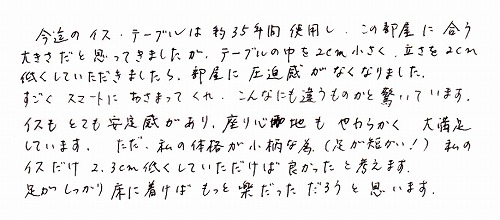 今迄のイス・テーブルは約35年間使用し、この部屋に合う
大きさだと思ってきましたが、テーブルの中を2cm小さく、立さを2cm
低くしていただきましたら、部屋に圧迫感がなくなりました。
すごくスマートにおさまってくれ、こんなにも違うものかと驚いています。
イスもとても安定感があり、座り心地もやわらかく大満足
しています。ただ、私の体格が小柄な為(足が短かい!)私の
イスだけ2,3cm低くしていただけば良かったと考えます。
足がしっかり床に着けばもっと楽だっただろうと思います。